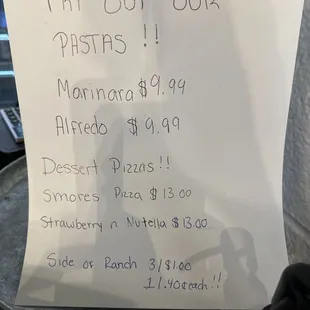 OUT OUR
PASTAS !!
Marinara $9.99
Alfredo $9.99
Dessert Pizzas!!
Smores Pizza $13.00
Strawberry n Nutella $13.00
Side of Ranch 3/$1.00
1/.40¢each!!